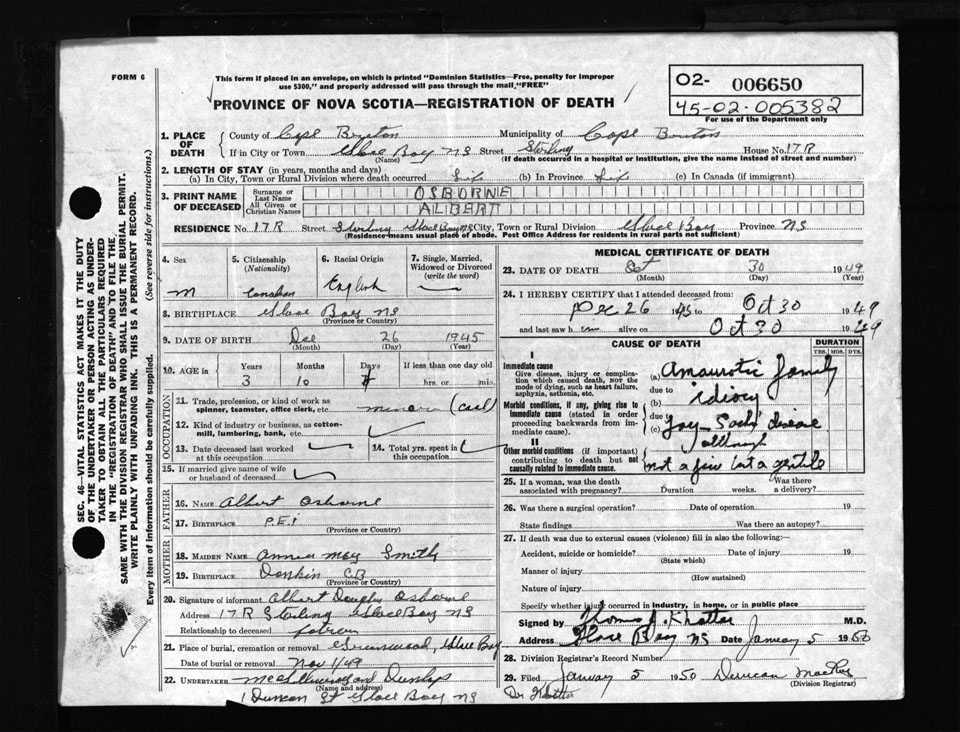 FORM 6
This form if placed in an envelope, on which is printed "Dominion Statistics—Free, penalty for improper
use $300," and properly addressed will pass through the mail, "FREE"
PROVINCE OF NOVA SCOTIA—REGISTRATION OF DEATH
02- 006650
45-02-005382
For use of the Department only
SEC. 46—VITAL STATISTICS ACT MAKES IT THE DUTY
OF THE UNDERTAKER OR PERSON ACTING AS UNDER-
TAKER TO OBTAIN ALL THE PARTICULARS REQUIRED
IN THE "REGISTRATION OF DEATH" AND TO FILE THE
SAME WITH THE DIVISION REGISTRAR WHO SHALL ISSUE THE BURIAL PERMIT.
WRITE PLAINLY WITH UNFADING INK. THIS IS A PERMANENT RECORD.
Every item of information should be carefully supplied. (See reverse side for instructions.)
1. PLACE OF DEATH
County of Cape Breton Municipality of Cape Breton
If in City or Town Glace Bay NS Street Sterling House No. 17 R
(Name) (If death occurred in a hospital or institution, give the name instead of street and number)
2. LENGTH OF STAY (in years, months and days)
(a) In City, Town or Rural Division where death occurred Life (b) In Province Life (c) In Canada (if immigrant)
3. PRINT NAME OF DECEASED
Surname or Last Name OSBORNE
All Given or Christian Names ALBERT
RESIDENCE No. 17 R Street Sterling Glace Bay NS City, Town or Rural Division Glace Bay Province NS
(Residence means usual place of abode. Post Office Address for residents in rural parts not sufficient)
4. Sex M
5. Citizenship (Nationality) Canadian
6. Racial Origin English
7. Single, Married, Widowed or Divorced (write the word)
8. BIRTHPLACE Glace Bay NS
(Province or Country)
9. DATE OF BIRTH Dec 26 1945
(Month) (Day) (Year)
10. AGE in Years Months Days If less than one day old
3 10 4 hrs. or min.
OCCUPATION
11. Trade, profession, or kind of work as
spinner, teamster, office clerk, etc. miner (coal)
12. Kind of industry or business, as cotton-
mill, lumbering, bank, etc.
13. Date deceased last worked
at this occupation
14. Total yrs. spent in
this occupation
15. If married give name of wife
or husband of deceased
FATHER
16. NAME Albert Osborne
17. BIRTHPLACE P.E.I
(Province or Country)
MOTHER
18. MAIDEN NAME Annie May Smith
19. BIRTHPLACE Donkin CB
(Province or Country)
20. Signature of informant Albert Douglas Osborne
Address 17 R Sterling Glace Bay NS
Relationship to deceased
21. Place of burial, cremation or removal Greenwood, Glace Bay
Date of burial or removal Nov 1/49
22. UNDERTAKER and Dunlap
(Name and address)
1 Duncan St Glace Bay NS
MEDICAL CERTIFICATE OF DEATH
23. DATE OF DEATH Oct 30 1949
(Month) (Day) (Year)
24. I HEREBY CERTIFY that I attended deceased from:
Dec 26 1945 to Oct 30 1949
and last saw him alive on Oct 30 1949
CAUSE OF DEATH DURATION
YRS. MOS. DYS.
I
Immediate cause
Give disease, injury or complica-
tion which caused death, NOT the
mode of dying, such as heart failure,
asphyxia, asthenia, etc.
(a) Amaurotic family
due to
Morbid conditions, if any, giving rise to
immediate cause (stated in order
proceeding backwards from im-
mediate cause).
(b) idiocy
due to
(c) Tay-Sachs disease
II
Other morbid conditions (if important)
contributing to death but not
causally related to immediate cause.
although
not a Jew but a gentile
25. If a woman, was the death
associated with pregnancy? Duration weeks. Was there
a delivery?
26. Was there a surgical operation? Date of operation 19
State findings Was there an autopsy?
27. If death was due to external causes (violence) fill in also the following:
Accident, suicide or homicide? Date of injury 19
(State which)
Manner of injury
(How sustained)
Nature of injury
Specify whether injury occurred in industry, in home, or in public place
Signed by Thomas J. Khattar M.D.
Address Glace Bay NS Date January 5 1950
28. Division Registrar's Record Number
29. Filed January 5 1950 Duncan
(Division Registrar)
Dr Khattar